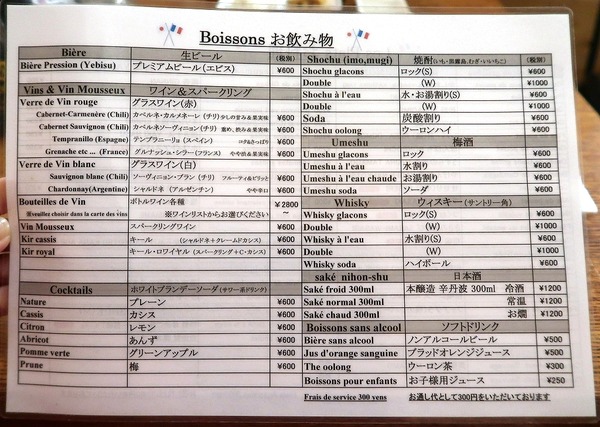 Boissons お飲み物
Bière 生ビール (税別)
Bière Pression (Yebisu) プレミアムビール(エビス) ¥600
Vins & Vin Mousseux ワイン&スパークリング
Verre de Vin rouge グラスワイン(赤)
Cabernet-Carmenère (Chili) カベルネ・カルメネーレ (チリ) ¥600
Cabernet Sauvignon (Chili) カベルネソーヴィニョン(チリ) ¥600
Tempranillo (Espagne) テンプラニーリョ(スペイン) ¥600
Grenache etc... (France) グルナッシュ・シラー(フランス) やや渋&果実味 ¥600
Verre de Vin blanc グラスワイン(白)
Sauvignon blanc (Chili) ソーヴィニョン・ブラン (チリ) フルーティ&ピリッと ¥600
Chardonnay(Argentine) シャルドネ (アルゼンチン) やや辛口 ¥600
Bouteilles de Vin ボトルワイン各種 ¥2800
※veuillez choisir dans la carte des vins ※ワインリストからお選びください ~
Vin Mousseux スパークリングワイン ¥600
Kir cassis キール (シャルドネ+クレームドカシス) ¥600
Kir royal キール・ロワイヤル (スパークリング+C・カシス) ¥600
Cocktails ホワイトブランデーソーダ(サワー系ドリンク)
Nature プレーン ¥600
Cassis カシス ¥600
Citron レモン ¥600
Abricot あんず ¥600
Pomme verte グリーンアップル ¥600
Prune 梅 ¥600
Shochu (imo,mugi) 焼酎 (税別)
Shochu glacons ロック(S) ¥600
Double (W) ¥1000
Shochu à l'eau 水・お湯割り(S) ¥600
Double (W) ¥1000
Soda 炭酸割り ¥600
Shochu oolong ウーロンハイ ¥600
Umeshu 梅酒
Umeshu glacons ロック ¥600
Umeshu à l'eau 水割り ¥600
Umeshu à l'eau chaude お湯割り ¥600
Umeshu soda ソーダ ¥600
Whisky ウィスキー(サントリー角)
Whisky glacons ロック(S) ¥600
Double (W) ¥1000
Whisky à l'eau 水割り(S) ¥600
Double (W) ¥1000
Whisky soda ハイボール ¥600
saké nihon-shu 日本酒
Saké froid 300ml 本醸造 辛丹波 300ml 冷酒 ¥1200
Saké normal 300ml 常温 ¥1200
Saké chaud 300ml お燗 ¥1200
Boissons sans alcool ソフトドリンク
Bière sans alcool ノンアルコールビール ¥500
Jus d'orange sanguine ブラッドオレンジジュース ¥500
The oolong ウーロン茶 ¥300
Boissons pour enfants お子様用ジュース ¥250
Frais de service 300 yens お通し代として300円をいただいております